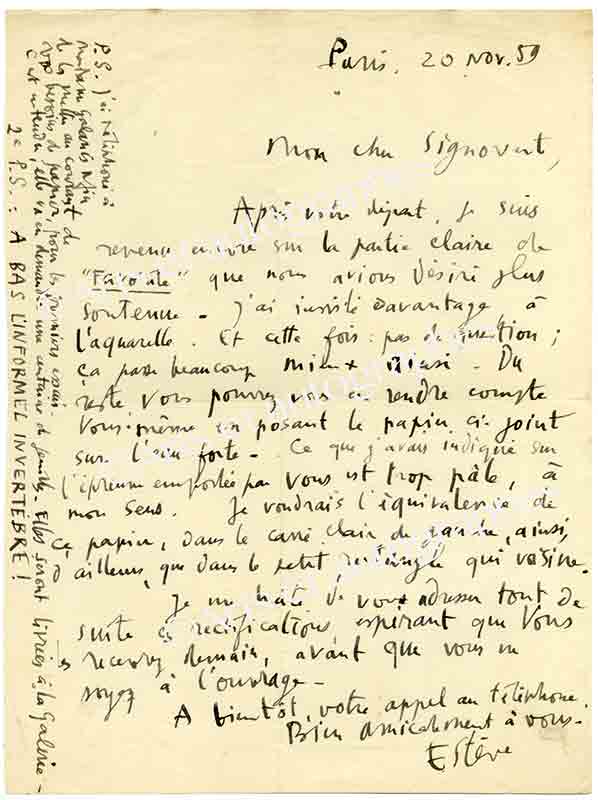 Paris. 20 Nov. 59
Mon cher Signovert,
Après votre départ, je suis
revenu encore sur la partie claire de
"Favorite" que nous avions désiré plus
soutenue - J'ai insisté davantage, à
l'aquarelle. Et cette fois : pas de question ;
ça passe beaucoup mieux ainsi - Du
reste vous pourrez vous en rendre compte
vous-même en posant le papier ci-joint
sur l'eau forte - Ce que j'avais indiqué sur
l'épreuve emportée par vous est trop pâle, à
mon sens. Je voudrais l'équivalence de
ce papier, dans le carré clair de gauche, ainsi,
d'ailleurs, que dans le petit rectangle qui voisine.
Je me hâte de vous adresser tout de
suite ces rectifications, espérant que vous
les recevrez demain, avant que vous ne
soyez à l'ouvrage -
A bientôt, votre appel au téléphone.
Bien amicalement à vous -
Estève
P.S. j'ai téléphoné à
Madame Galanis afin
de la mettre au courant de
vos besoins de papier, pour les premiers essais
C'est entendu, elle va en demander une centaine de feuilles - Elles seront livrées à la Galerie -
2e P.S. : A BAS L'INFORMEL INVERTEBRÉ !